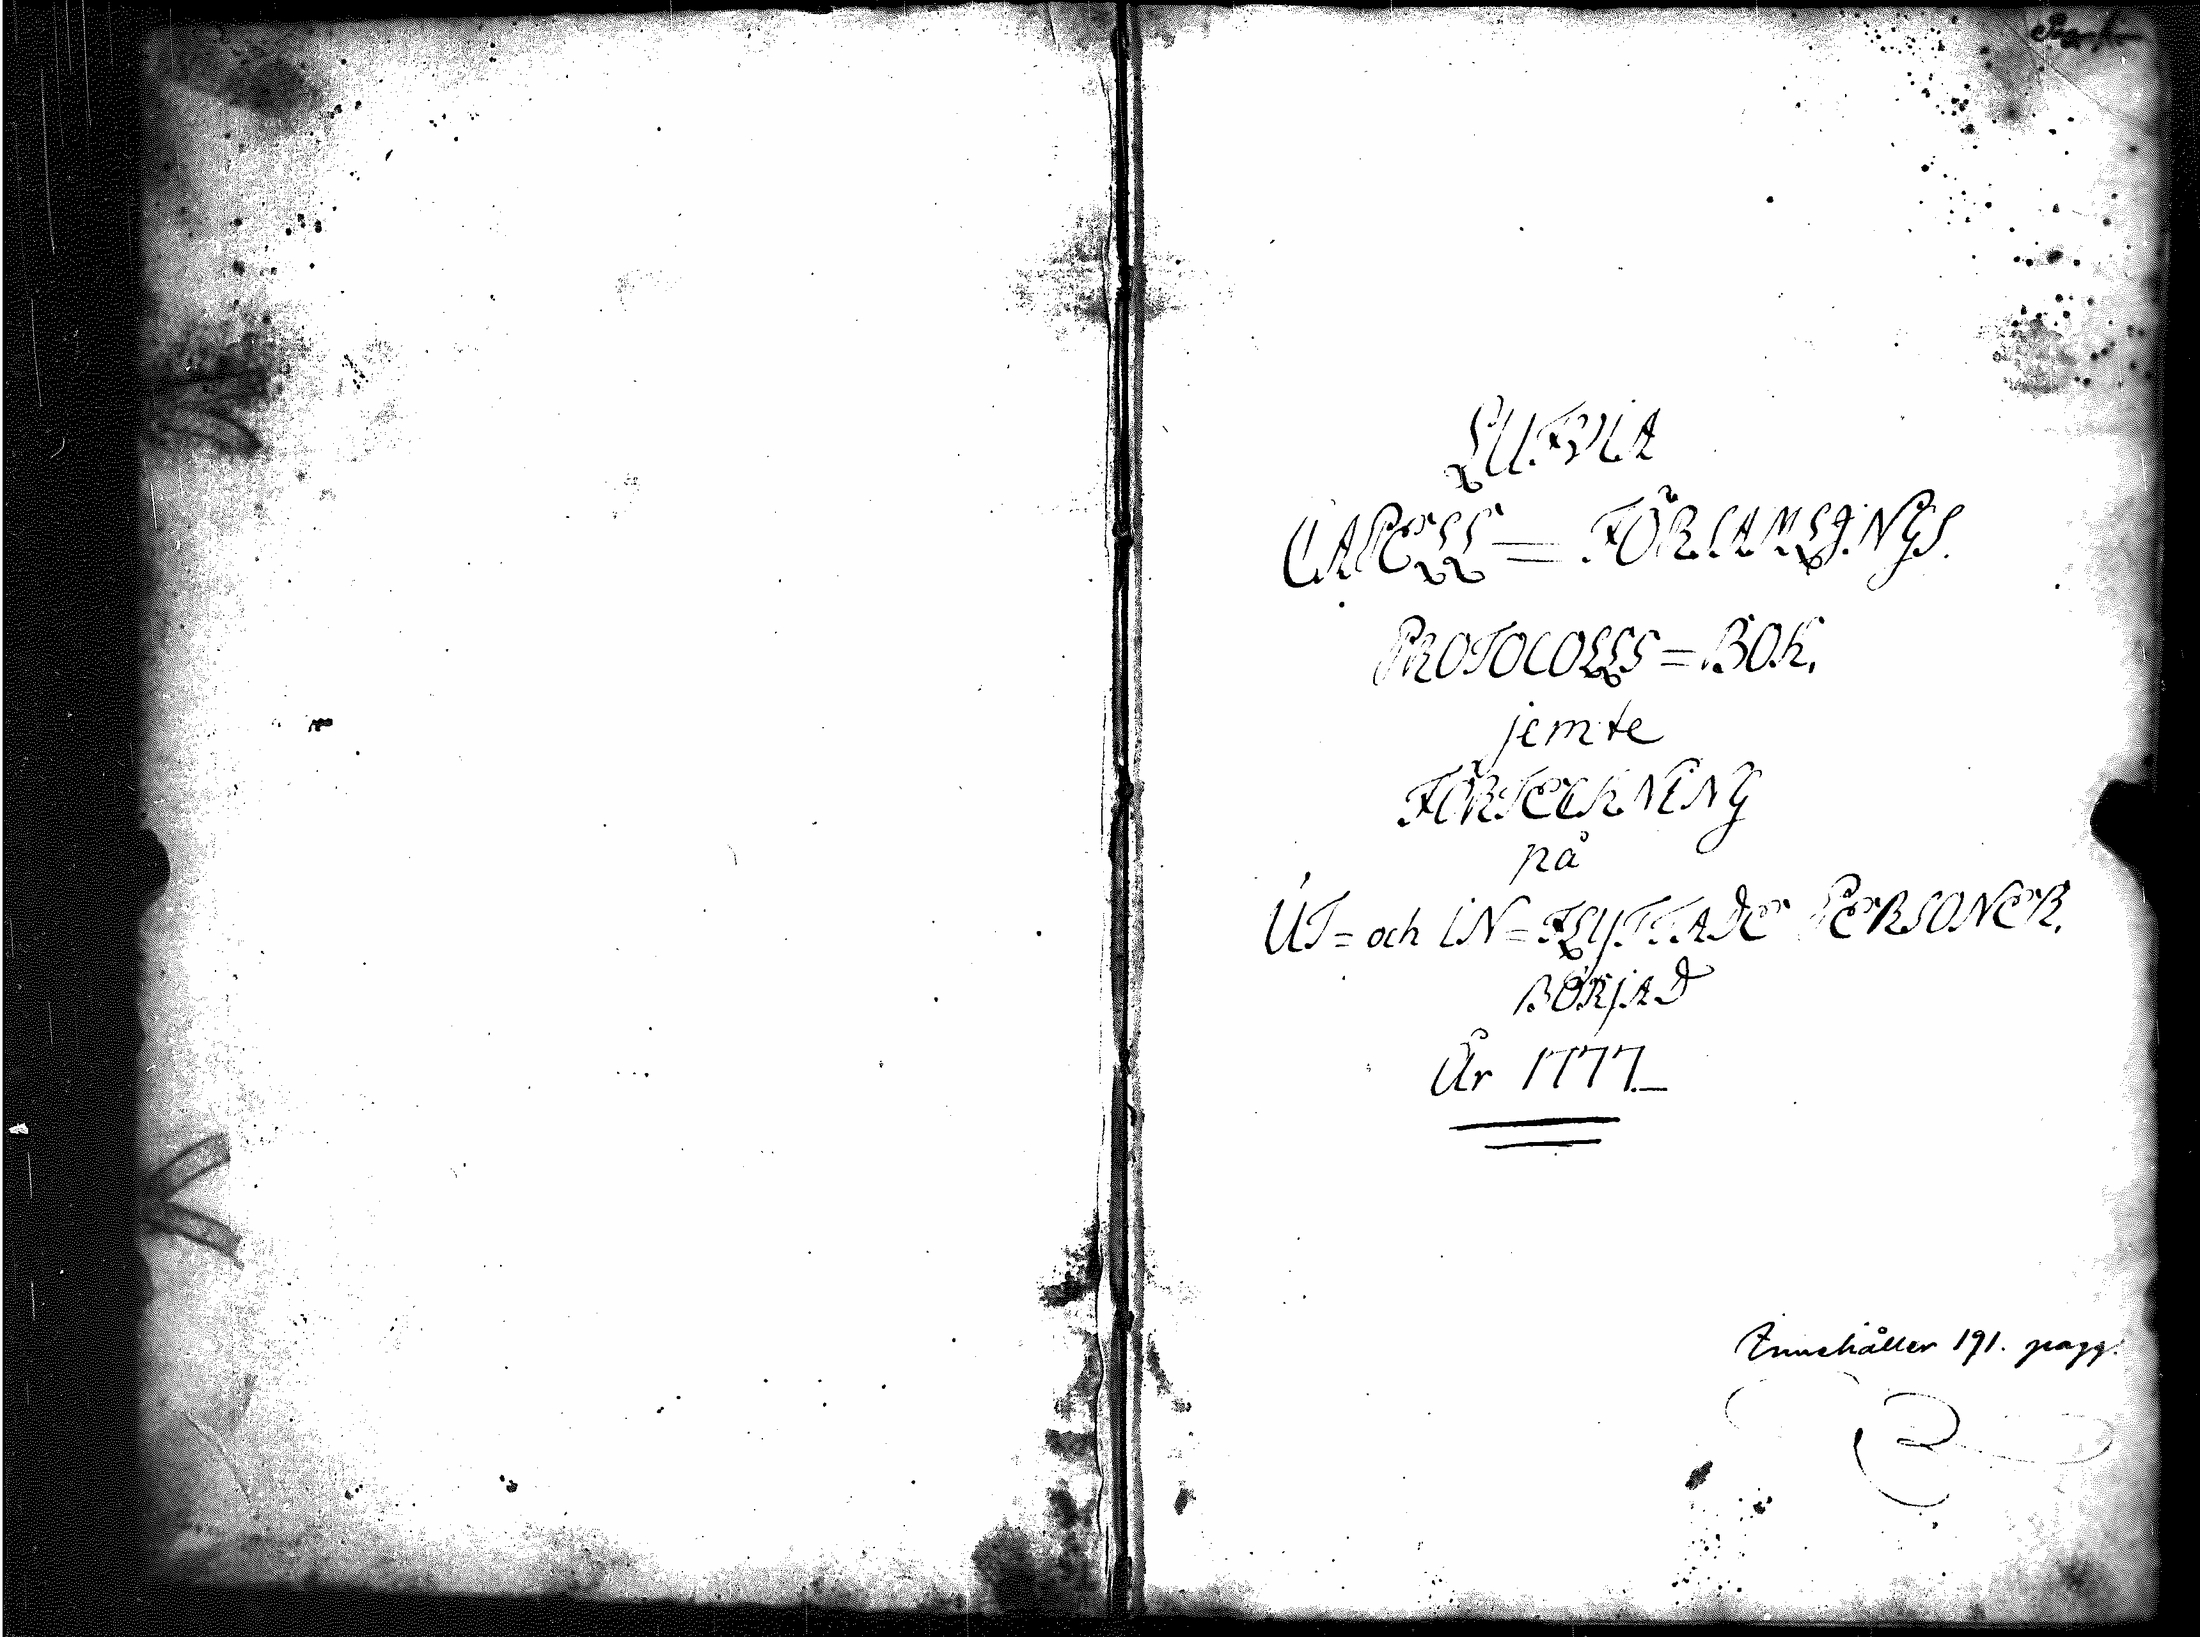 LUFVIA
CAPELL = FÖRSAMLINGS.
PROTOCOLLS = BOK,
jemte
FÖRTECKNING
på
UT = och IN = FLYTTADE PERSONER.
BÖRJAD
År 1777.
Innehåller 191. pagg.